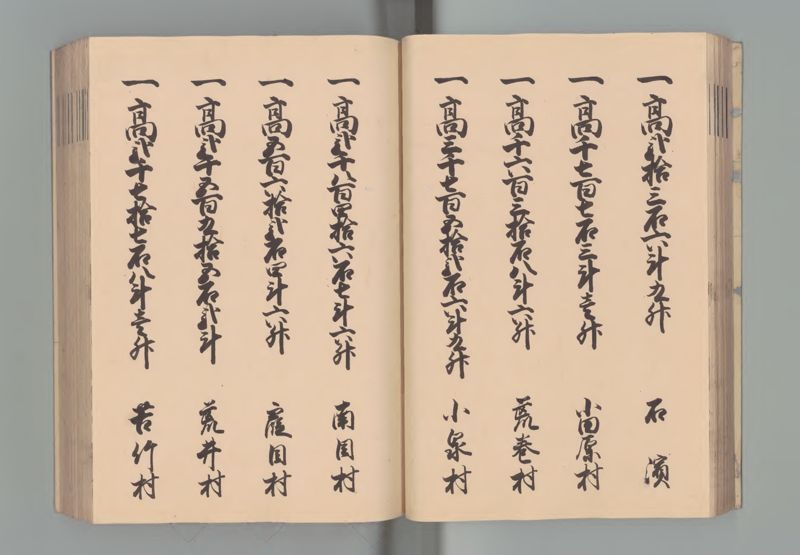 一高弐拾三石六斗九升 石濱
一高千七百七石三斗壱升 小田原村
一高千六百三拾石八斗六升 荒巻村
一高三千七百五拾弐石六斗九升 小泉村
一高弐千八百四拾六石七斗六升 南目村
一高五百六拾弐石四斗六升 目村
一高弐千五百五拾五石弐斗 荒井村
一高弐千七拾七石八斗壱升 苦竹村